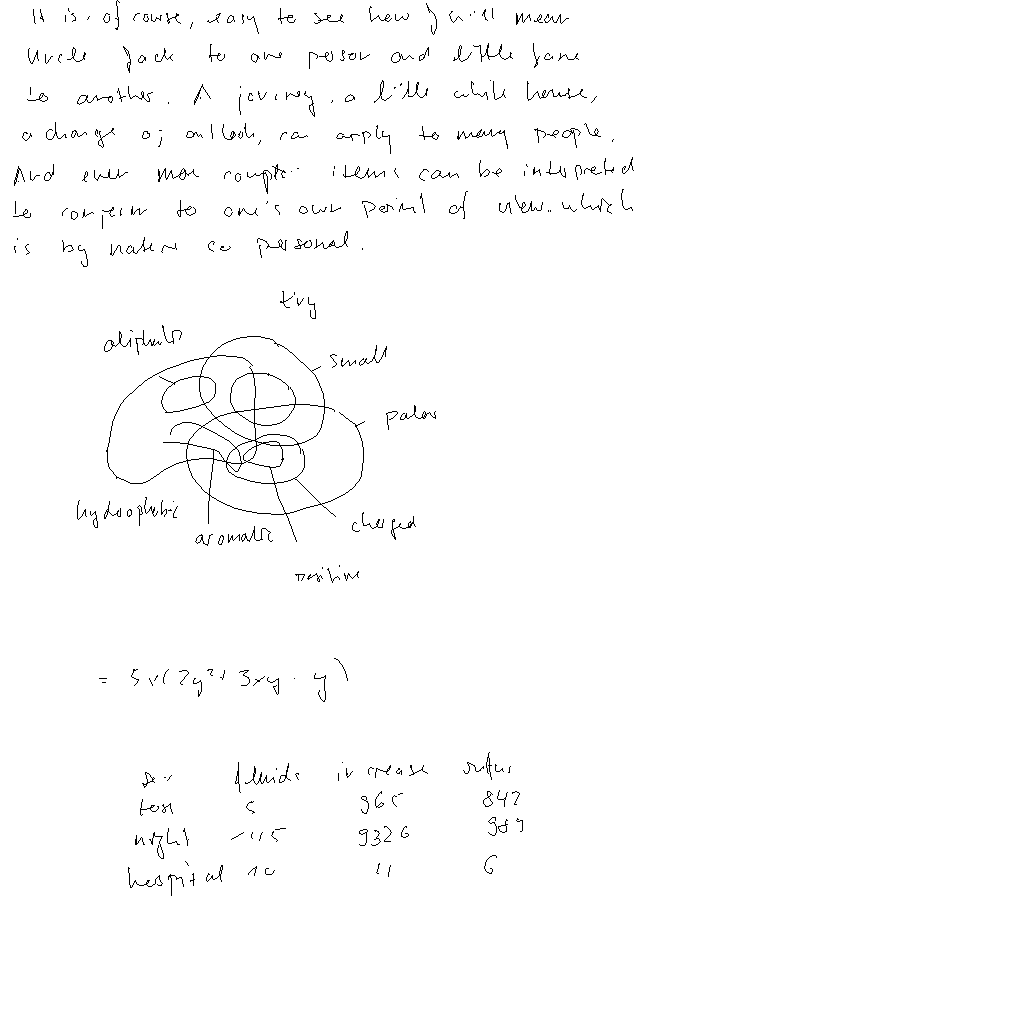 It is, of course, easy to see how J will mean
Uncle Jack to one person and little Jane
to another. A journey, a little white house,
a change of outlook, can apply to many people.
And even more items can be interpreted
to conform to one's own point of view, which
is by nature so personal.
tiny
aliphatic
small
polar
hydrophobic
aromatic
charged
positive
= 5x(2y²+ 3xy - y)
fluids increase
test 5 965 842
night 9326 989
hospital 10 11 6